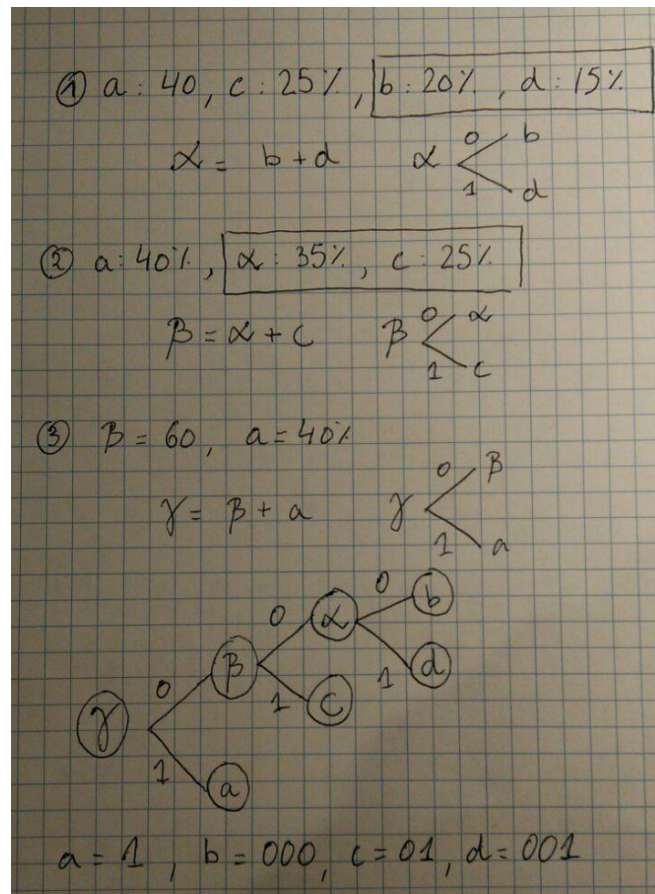 ① a : 40 , c : 25% , b : 20% , d : 15%
α = b + d α 0 b 1 d
② a : 40% , α : 35% , c : 25%
β = α + c β 0 α 1 c
③ β = 60 , a = 40%
γ = β + a γ 0 β 1 a
0 b
0 α
1 d
0 β
1 c
γ
1 a
a = 1 , b = 000 , c = 01 , d = 001